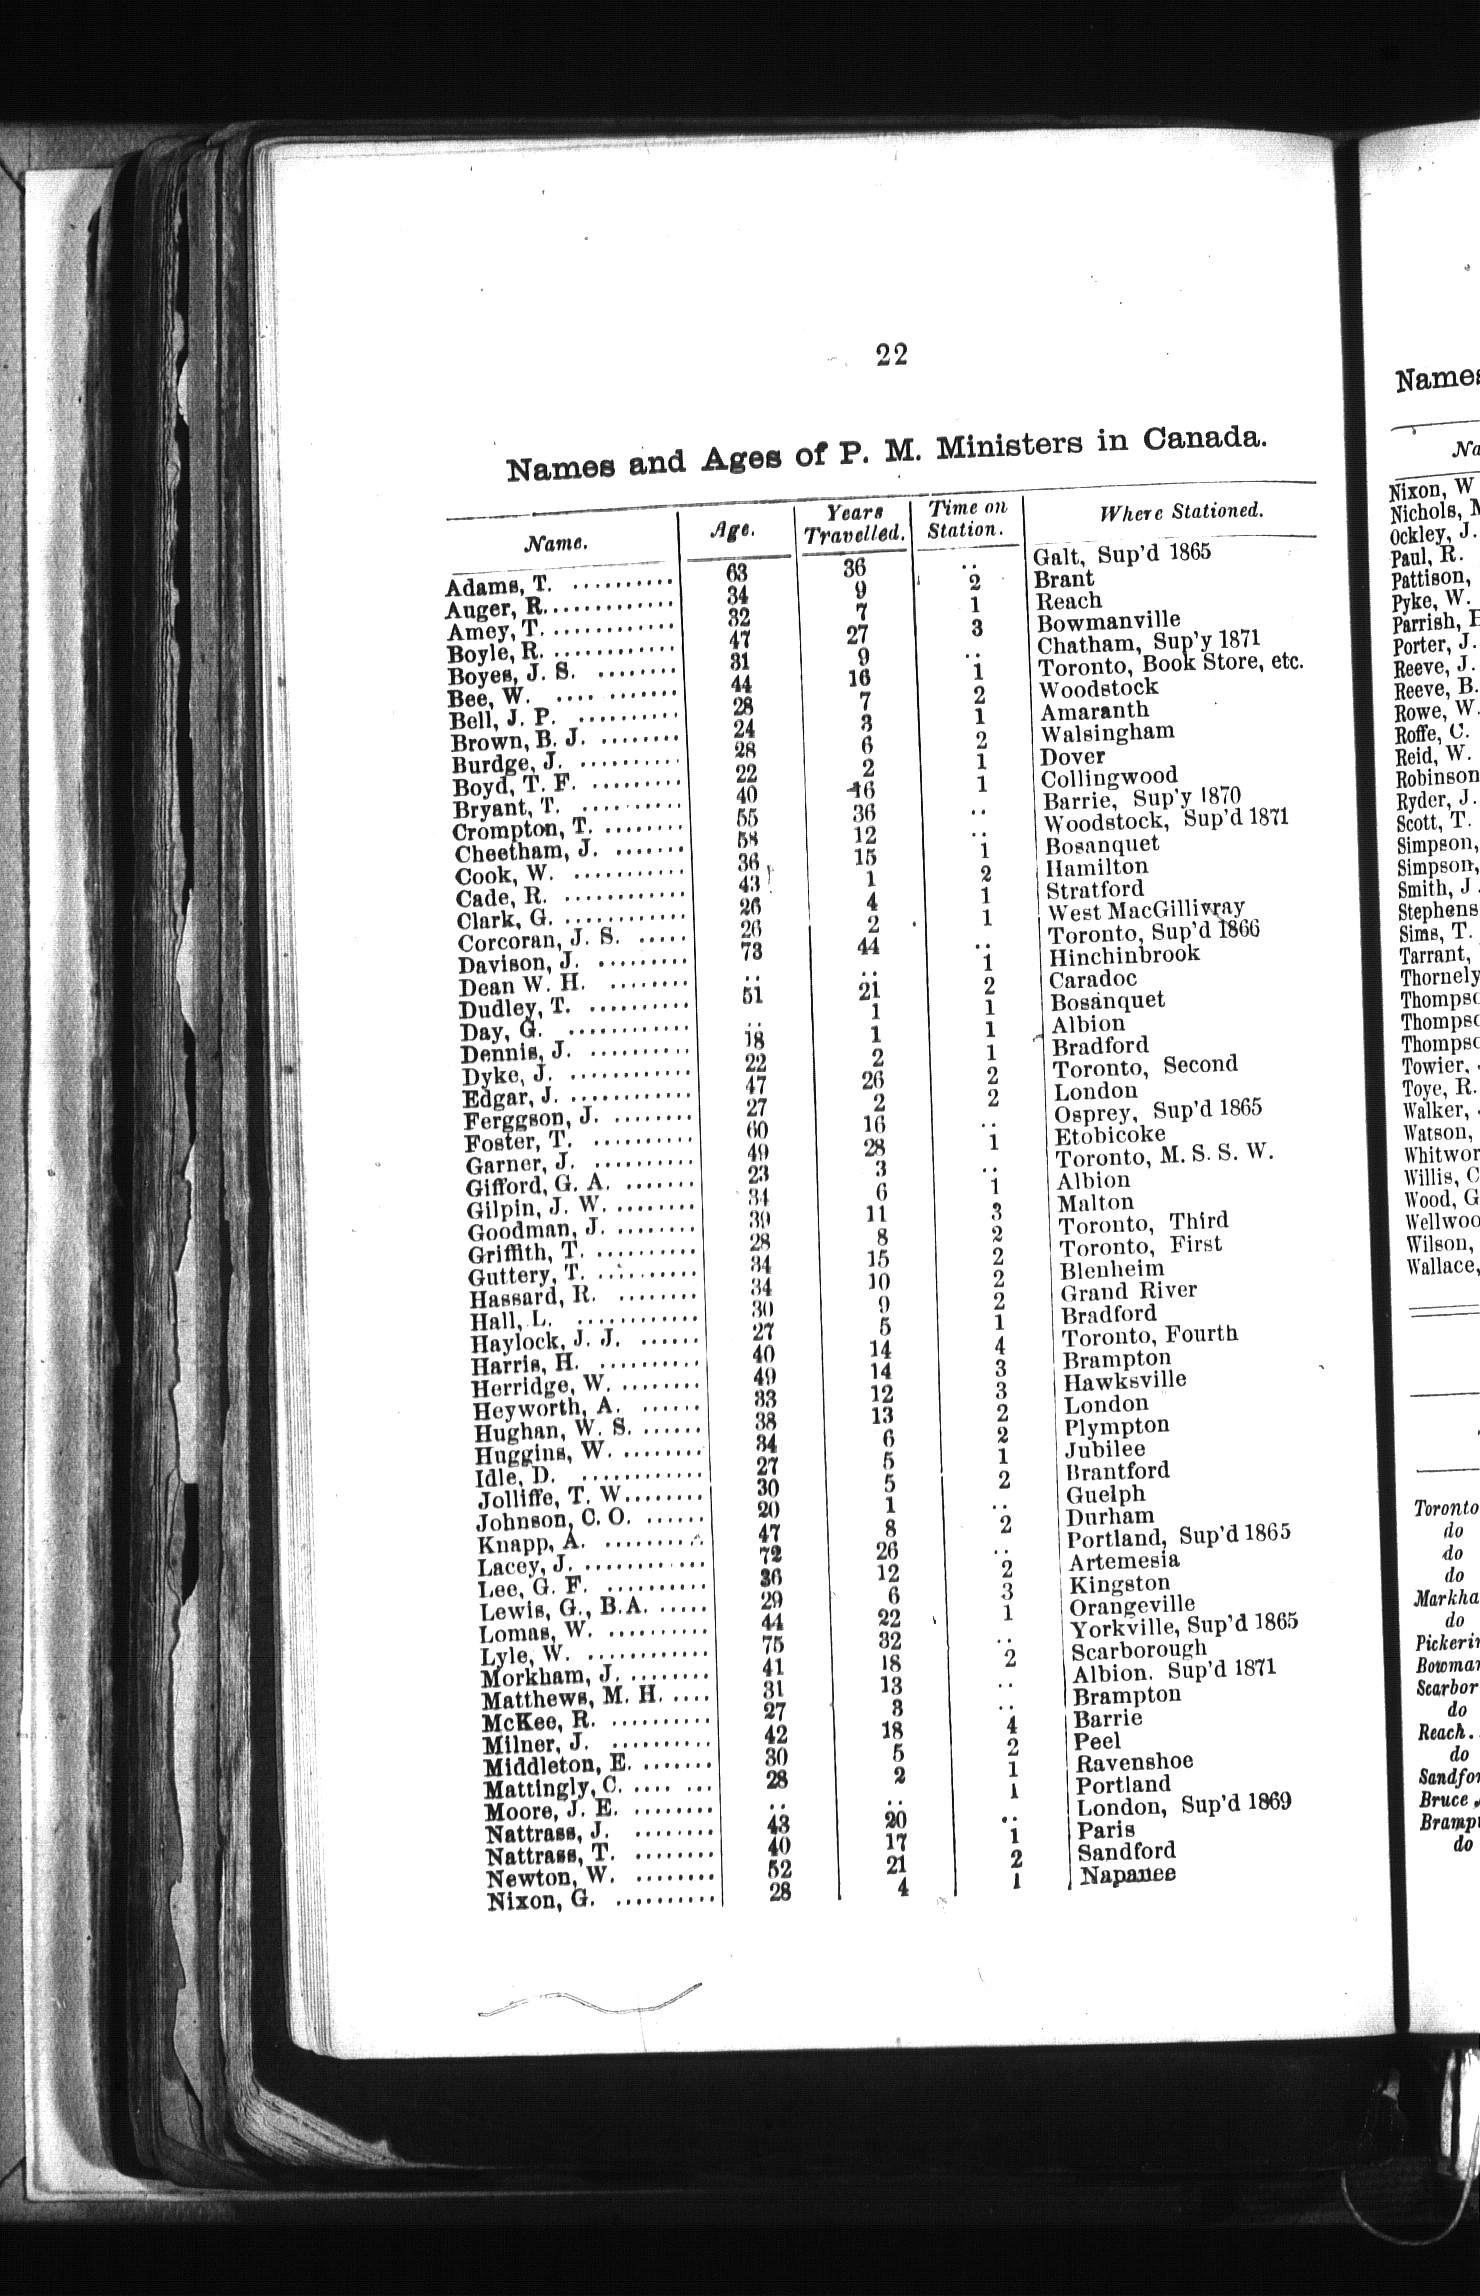 22
Names and Ages of P. M. Ministers in Canada.
Name. Age. Years Travelled. Time on Station. Where Stationed.
Adams, T. .......... 63 36 .. Galt, Sup'd 1865
Auger, R. .......... 34 9 2 Brant
Amey, T. .......... 32 7 1 Reach
Boyle, R. .......... 47 27 3 Bowmanville
Boyes, J. S. ........ 31 9 .. Chatham, Sup'y 1871
Bee, W. .......... 44 16 1 Toronto, Book Store, etc.
Bell, J. P. .......... 28 7 2 Woodstock
Brown, B. J. ........ 24 3 1 Amaranth
Burdge, J. .......... 28 6 2 Walsingham
Boyd, T. F. ......... 22 2 1 Dover
Bryant, T. .......... 40 16 1 Collingwood
Crompton, T. ........ 55 36 .. Barrie, Sup'y 1870
Cheetham, J. ....... 58 12 .. Woodstock, Sup'd 1871
Cook, W. .......... 36 15 1 Bosanquet
Cade, R. .......... 43 1 2 Hamilton
Clark, G. .......... 26 4 1 Stratford
Corcoran, J. S. ..... 26 2 1 West MacGillivray
Davison, J. ......... 73 44 .. Toronto, Sup'd 1866
Dean W. H. ........ .. .. 1 Hinchinbrook
Dudley, T. .......... 51 21 2 Caradoc
Day, G. .......... .. 1 1 Bosanquet
Dennis, J. .......... 18 1 1 Albion
Dyke, J. .......... 22 2 1 Bradford
Edgar, J. .......... 47 26 2 Toronto, Second
Ferggson, J. ........ 27 2 2 London
Foster, T. .......... 60 16 .. Osprey, Sup'd 1865
Garner, J. .......... 49 28 1 Etobicoke
Gifford, G. A. ....... 23 3 .. Toronto, M. S. S. W.
Gilpin, J. W. ........ 34 6 1 Albion
Goodman, J. ........ 39 11 3 Malton
Griffith, T. .......... 28 8 2 Toronto, Third
Guttery, T. .......... 34 15 2 Toronto, First
Hassard, R. ........ 34 10 2 Blenheim
Hall, L. .......... 30 9 2 Grand River
Haylock, J. J. ...... 27 5 1 Bradford
Harris, H. .......... 40 14 4 Toronto, Fourth
Herridge, W. ........ 49 14 3 Brampton
Heyworth, A. ...... 33 12 3 Hawksville
Hughan, W. S. ...... 38 13 2 London
Huggins, W. ........ 34 6 2 Plympton
Idle, D. .......... 27 5 1 Jubilee
Jolliffe, T. W........ 30 5 2 Brantford
Johnson, C. O. ...... 20 1 .. Guelph
Knapp, A. .......... 47 8 2 Durham
Lacey, J. .......... 72 26 .. Portland, Sup'd 1865
Lee, G. F. .......... 36 12 2 Artemesia
Lewis, G., B.A. ..... 29 6 3 Kingston
Lomas, W. .......... 44 22 1 Orangeville
Lyle, W. .......... 75 32 .. Yorkville, Sup'd 1865
Morkham, J. ........ 41 18 2 Scarborough
Matthews, M. H. .... 31 13 .. Albion. Sup'd 1871
McKee, R. .......... 27 3 .. Brampton
Milner, J. .......... 42 18 4 Barrie
Middleton, E. ....... 30 5 2 Peel
Mattingly, C. .... ... 28 2 1 Ravenshoe
Moore, J. E. ........ .. .. 1 Portland
Nattrass, J. ........ 43 20 .. London, Sup'd 1869
Nattrass, T. ........ 40 17 1 Paris
Newton, W. ........ 52 21 2 Sandford
Nixon, G. .......... 28 4 1 Napanee
Names
Na
Nixon, W
Nichols,
Ockley, J.
Paul, R.
Pattison,
Pyke, W.
Parrish,
Porter, J.
Reeve, J.
Reeve, B.
Rowe, W.
Roffe, C.
Reid, W.
Robinson
Ryder, J.
Scott, T.
Simpson,
Simpson,
Smith, J.
Stephens
Sims, T.
Tarrant,
Thornely
Thompso
Thompso
Thompso
Towier,
Toye, R.
Walker,
Watson,
Whitwor
Willis, C
Wood, G
Wellwoo
Wilson,
Wallace,
Toronto
do
do
do
Markha
do
Pickerin
Bowman
Scarbor
do
Reach.
do
Sandfor
Bruce
Brampt
do